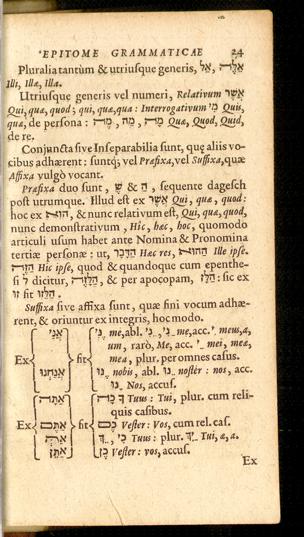 EPITOME GRAMMATICAE 24
Pluralia tantùm & utriusque generis, אֵלֶּה, אֵל
Illi, Illæ, illa.
Utriusque generis vel numeri, Relativum אֲשֶׁר
Qui, quæ, quod; qui, quæ, qua: Interrogativum מִי Quis,
quæ, de persona: מָה, מַה, מֶה Quæ, Quod, Quid,
de re.
Conjuncta sive Inseparabilia sunt, quę aliis vo-
cibus adhærent: suntq; vel Præfixa, vel Suffixa, quæ
Affixa vulgò vocant.
Præfixa duo sunt, שֶׁ & הַ, sequente dagesch
post utrumque. Illud est ex אֲשֶׁר Qui, quæ, quod:
hoc ex הוּא, & nunc relativum est, Qui, quæ, quod,
nunc demonstrativum, Hic, hæc, hoc, quomodo
articuli usum habet ante Nomina & Pronomina
tertiæ personæ: ut, הַדָּבָר Hæc res, הַהוּא Ille ipse.
הַזֶּה Hic ipse, quod & quandoque cum epenthe-
si ל dicitur, הַלָּזֶה, & per apocopam, הַלָּז: sic ex
זוּ fit הַלֵּזוּ.
Suffixa sive affixa sunt, quæ fini vocum adhæ-
rent, & oriuntur ex integris, hoc modo.
Ex אֲנִי fit נִי me, abl. נִי, נִי me, acc. meus, a,
um, rarò, Me, acc. mei, meæ,
mea, plur. per omnes casus.
אֲנַחְנוּ נוּ nobis, abl. נוּ noster: nos, acc.
נוּ Nos, accus.
Ex אַתָּה fit ךָ כָה Tuus: Tui, plur. cum reli-
quis casibus.
אַתֶּם כֶם Vester: Vos, cum rel. cas.
אַתְּ כִי, ךְ Tuus: plur. יִךְ Tui, æ, a.
אַתֶּן כֶן Vester: vos, accus.
Ex